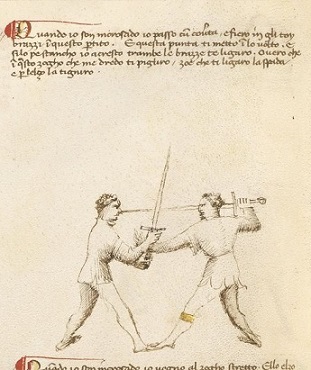 Quando io son incrosado io passo cū couᵗa, e fiero in gli toy
brazzi ī questo ptito. E questa punta ti metto ī lo uolto. E
si lo pe stancho io acresto trambe le brazze te ligaro. Ouero che
ī q̄sto zogho che me dredo ti pigliro, zoe che ti ligaro la spada
e la tigniro.
Quādo io son incrosado io uegno al zogho stretto. Ello elzo